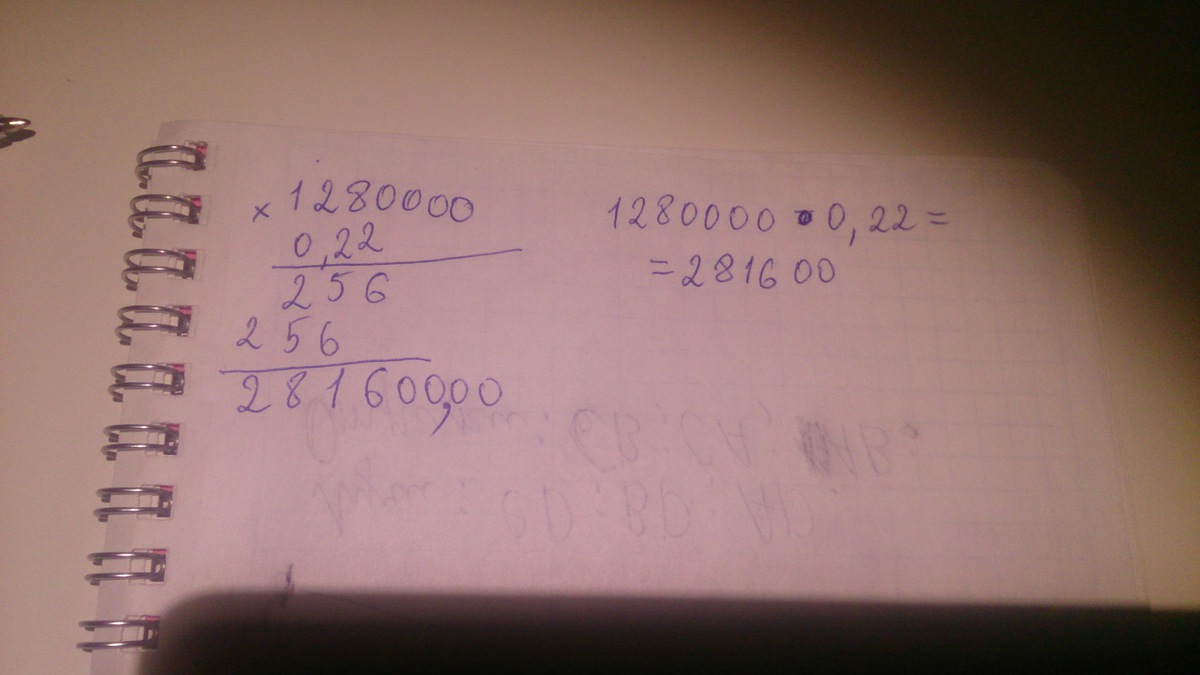 × 1280000
0,22
256
256
281600,00
1280000 • 0,22 =
= 281600